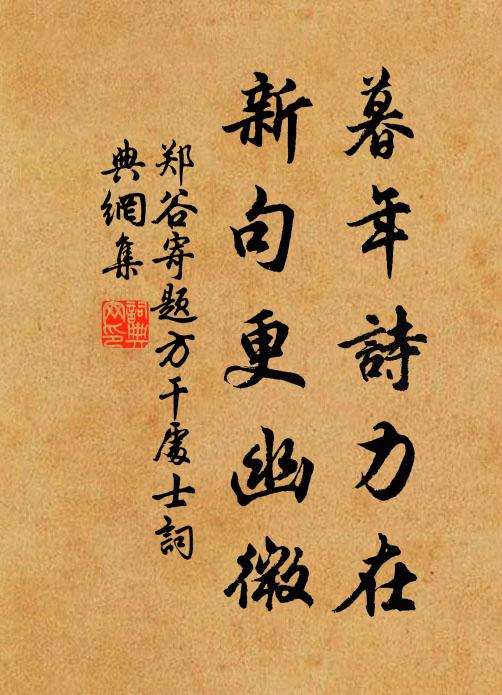 暮年詩力在
新句更幽微
郑谷寄题方干處士詞
典網集
詞典
网印